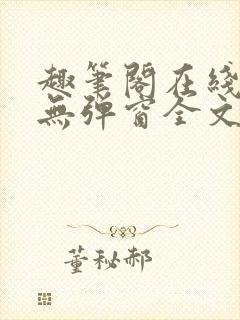 趣筆閣在綫
無彈窗全文
董秘郝